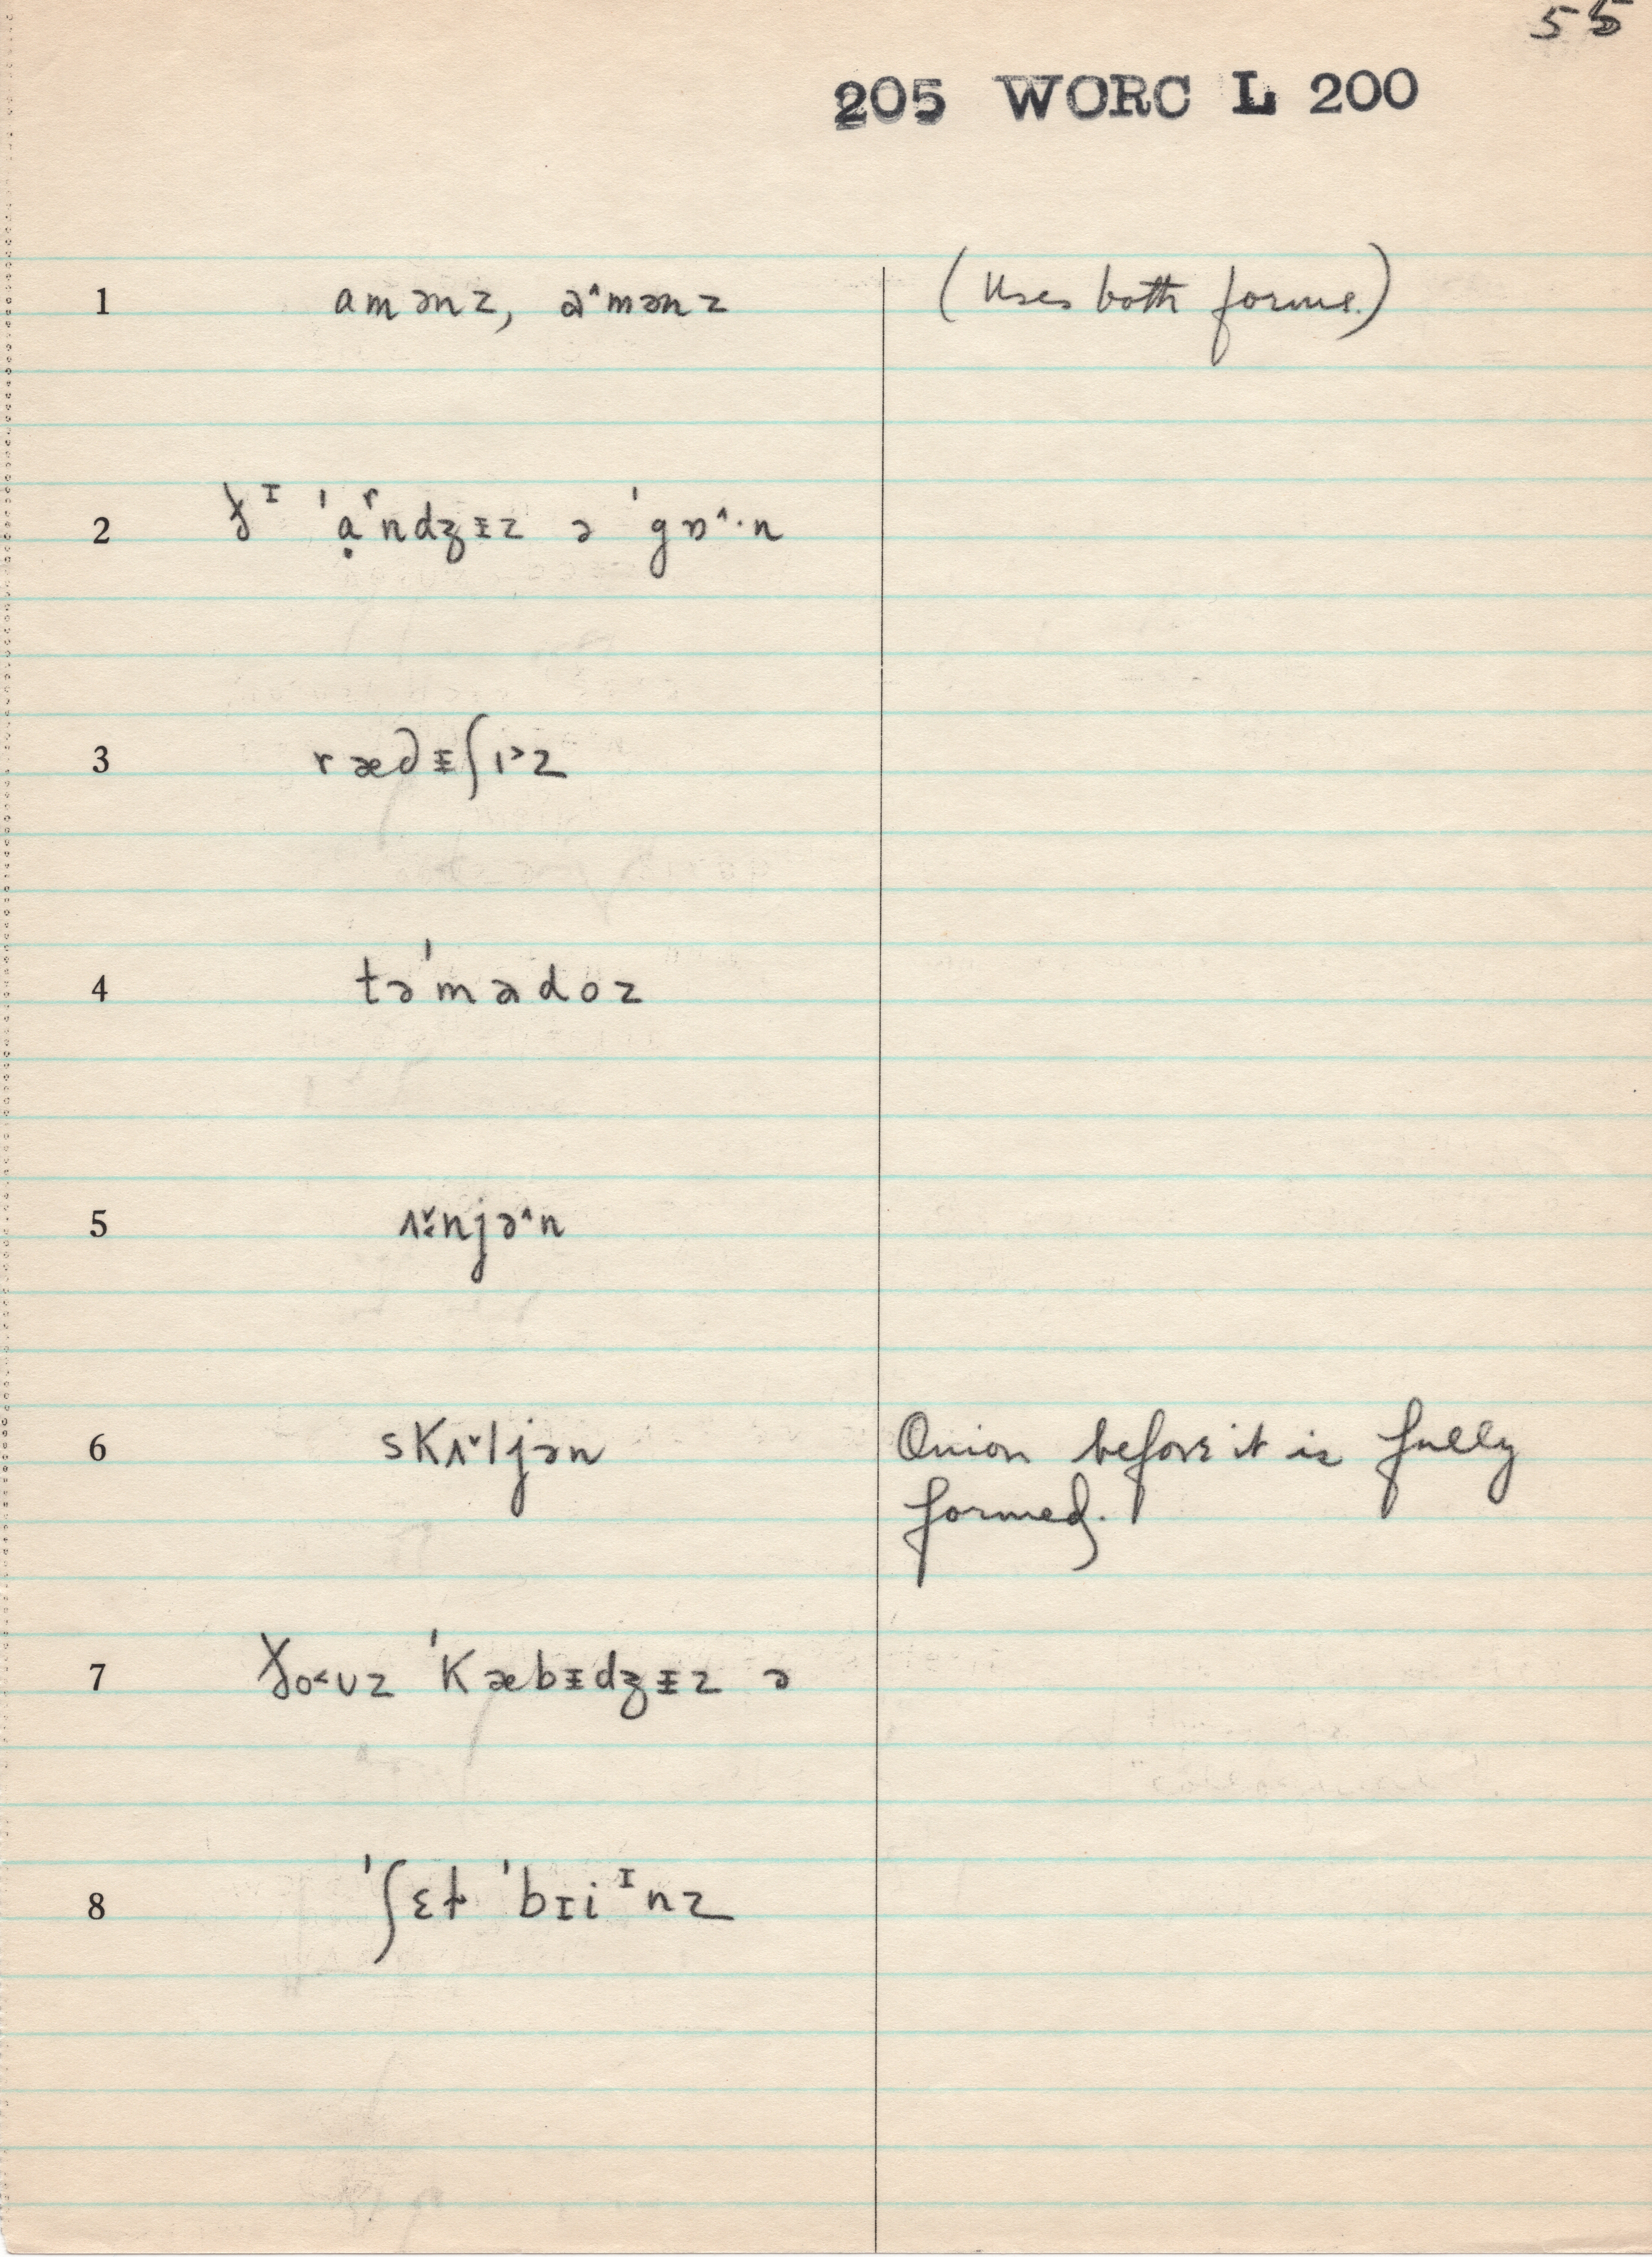 55
205 WORC L 200
1 amənz, a˄mənz (Uses both forms.)
2 ðᶦ ˈạʳndʒᵻz ə ˈgɒ˄·n
3 rædᵻʃɪ˃z
4 təˈmadoz
5 ʌ̌·njə˄n
6 skʌ˅ljən Onion before it is fully
formed.
7 ðo˂ʊz ˈkæbᵻdʒᵻz ə
8 ˈʃɛɫ ˈbɪiᶦnz